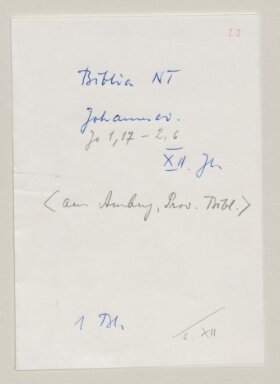 23
Biblia NT
Johannesev.
Jo 1,17 – 2,6
XII. Jh
<aus Amberg, Prov. Bibl.>
1 Bl.
s. XII